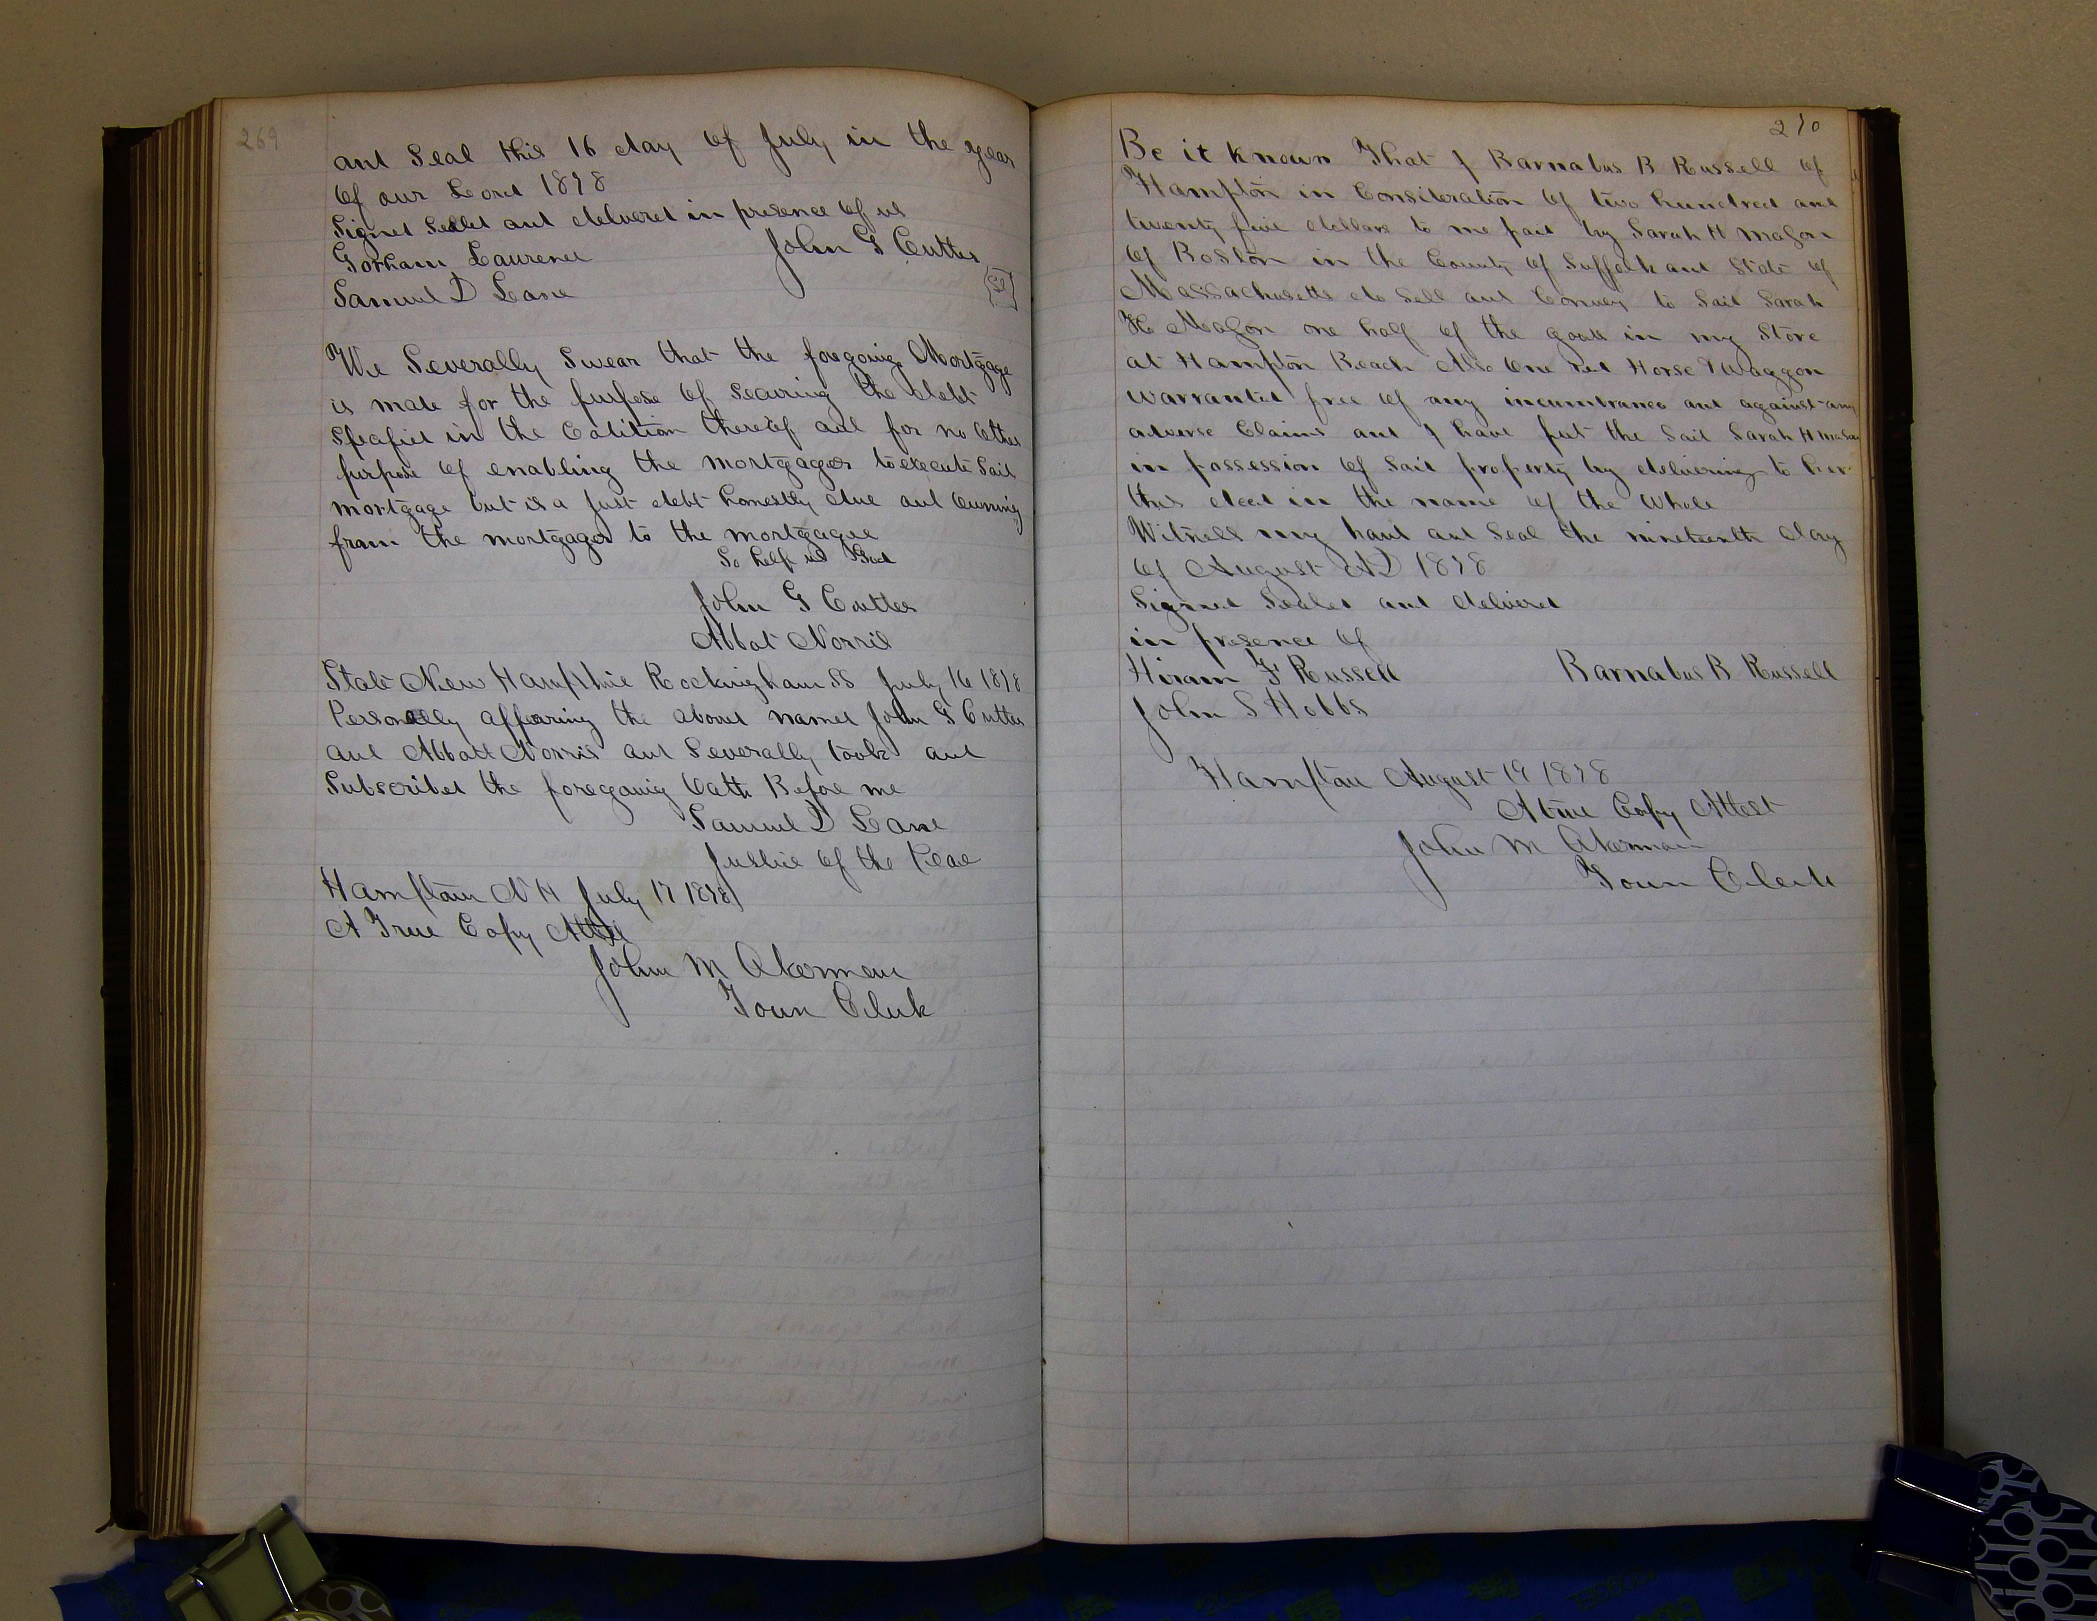 269
and Seal this 16 day of July in the year
of our Lord 1878
Signed Sealed and delivered in presence of us
Gorham Laurence John G Cutter
Samuel D Lane
We Severally Swear that the foregoing Mortgage
is made for the purpose of securing the debt
Specified in the Condition thereof and for no other
purpose of enabling the mortgagor to execute Said
mortgage but is a just debt honestly due and owning
from the mortgagor to the mortgagee
So help us God
John G Cutter
Abbot Norris
State New Hampshire Rockingham SS July 16 1878
Personally appearing the above named John G Cutter
and Abbott Norris and Severally took and
Subscribed the foregoing Oath Before me
Samuel D Lane
Justice of the Peace
Hampton N H July 17 1878
A True Copy Attest
John M Akerman
Town Clerk
270
Be it known That I Barnabus B Russell of
Hampton in Consideration of two hundred and
twenty five dollars to me paid by Sarah H Mason
of Boston in the County of Suffolk and State of
Massachusetts do Sell and Convey to Said Sarah
H Mason one half of the goods in my Store
at Hampton Beach Also One red Horse & Waggon
warranted free of any incumbrance and against any
adverse Claims and I have put the Said Sarah H Mason
in possession of Said property by delivering to her
this deed in the name of the Whole
Witness my hand and Seal the nineteenth day
of August AD 1878
Signed Sealed and delivered
in presence of
Hiram F Russell Barnabus B Russell
John S Hobbs
Hampton August 19 1878
A true Copy Attest
John M Akerman
Town Clerk